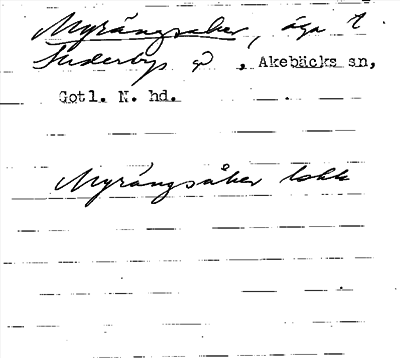 Myrängsåker, äga t
Suderbys , Akebäcks sn,
Gotl. N. hd.
Myrängsåker lokk